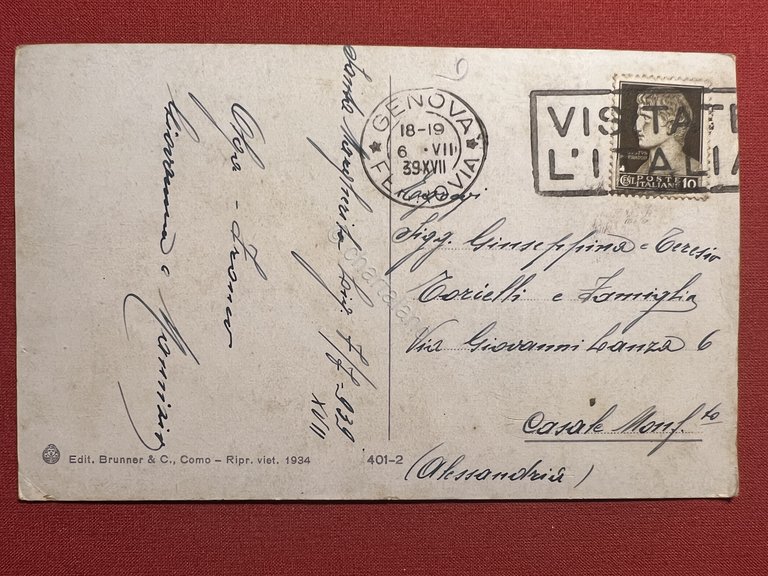 Santa Margherita Lig. 7/7-939
XVII
Olga - Franco
Giovanna e
6
GENOVA
18-19
6 · VII
39XVII
FERROVIA
VISITATE
L'ITALIA
POSTE
ITALIANE
CENT. 10
Sigg. Giuseppina - Teresio
Torielli e Famiglia
Via Giovanni Lanza 6
Casale Monf.to
(Alessandria)
Edit. Brunner & C., Como - Ripr. viet. 1934
401-2